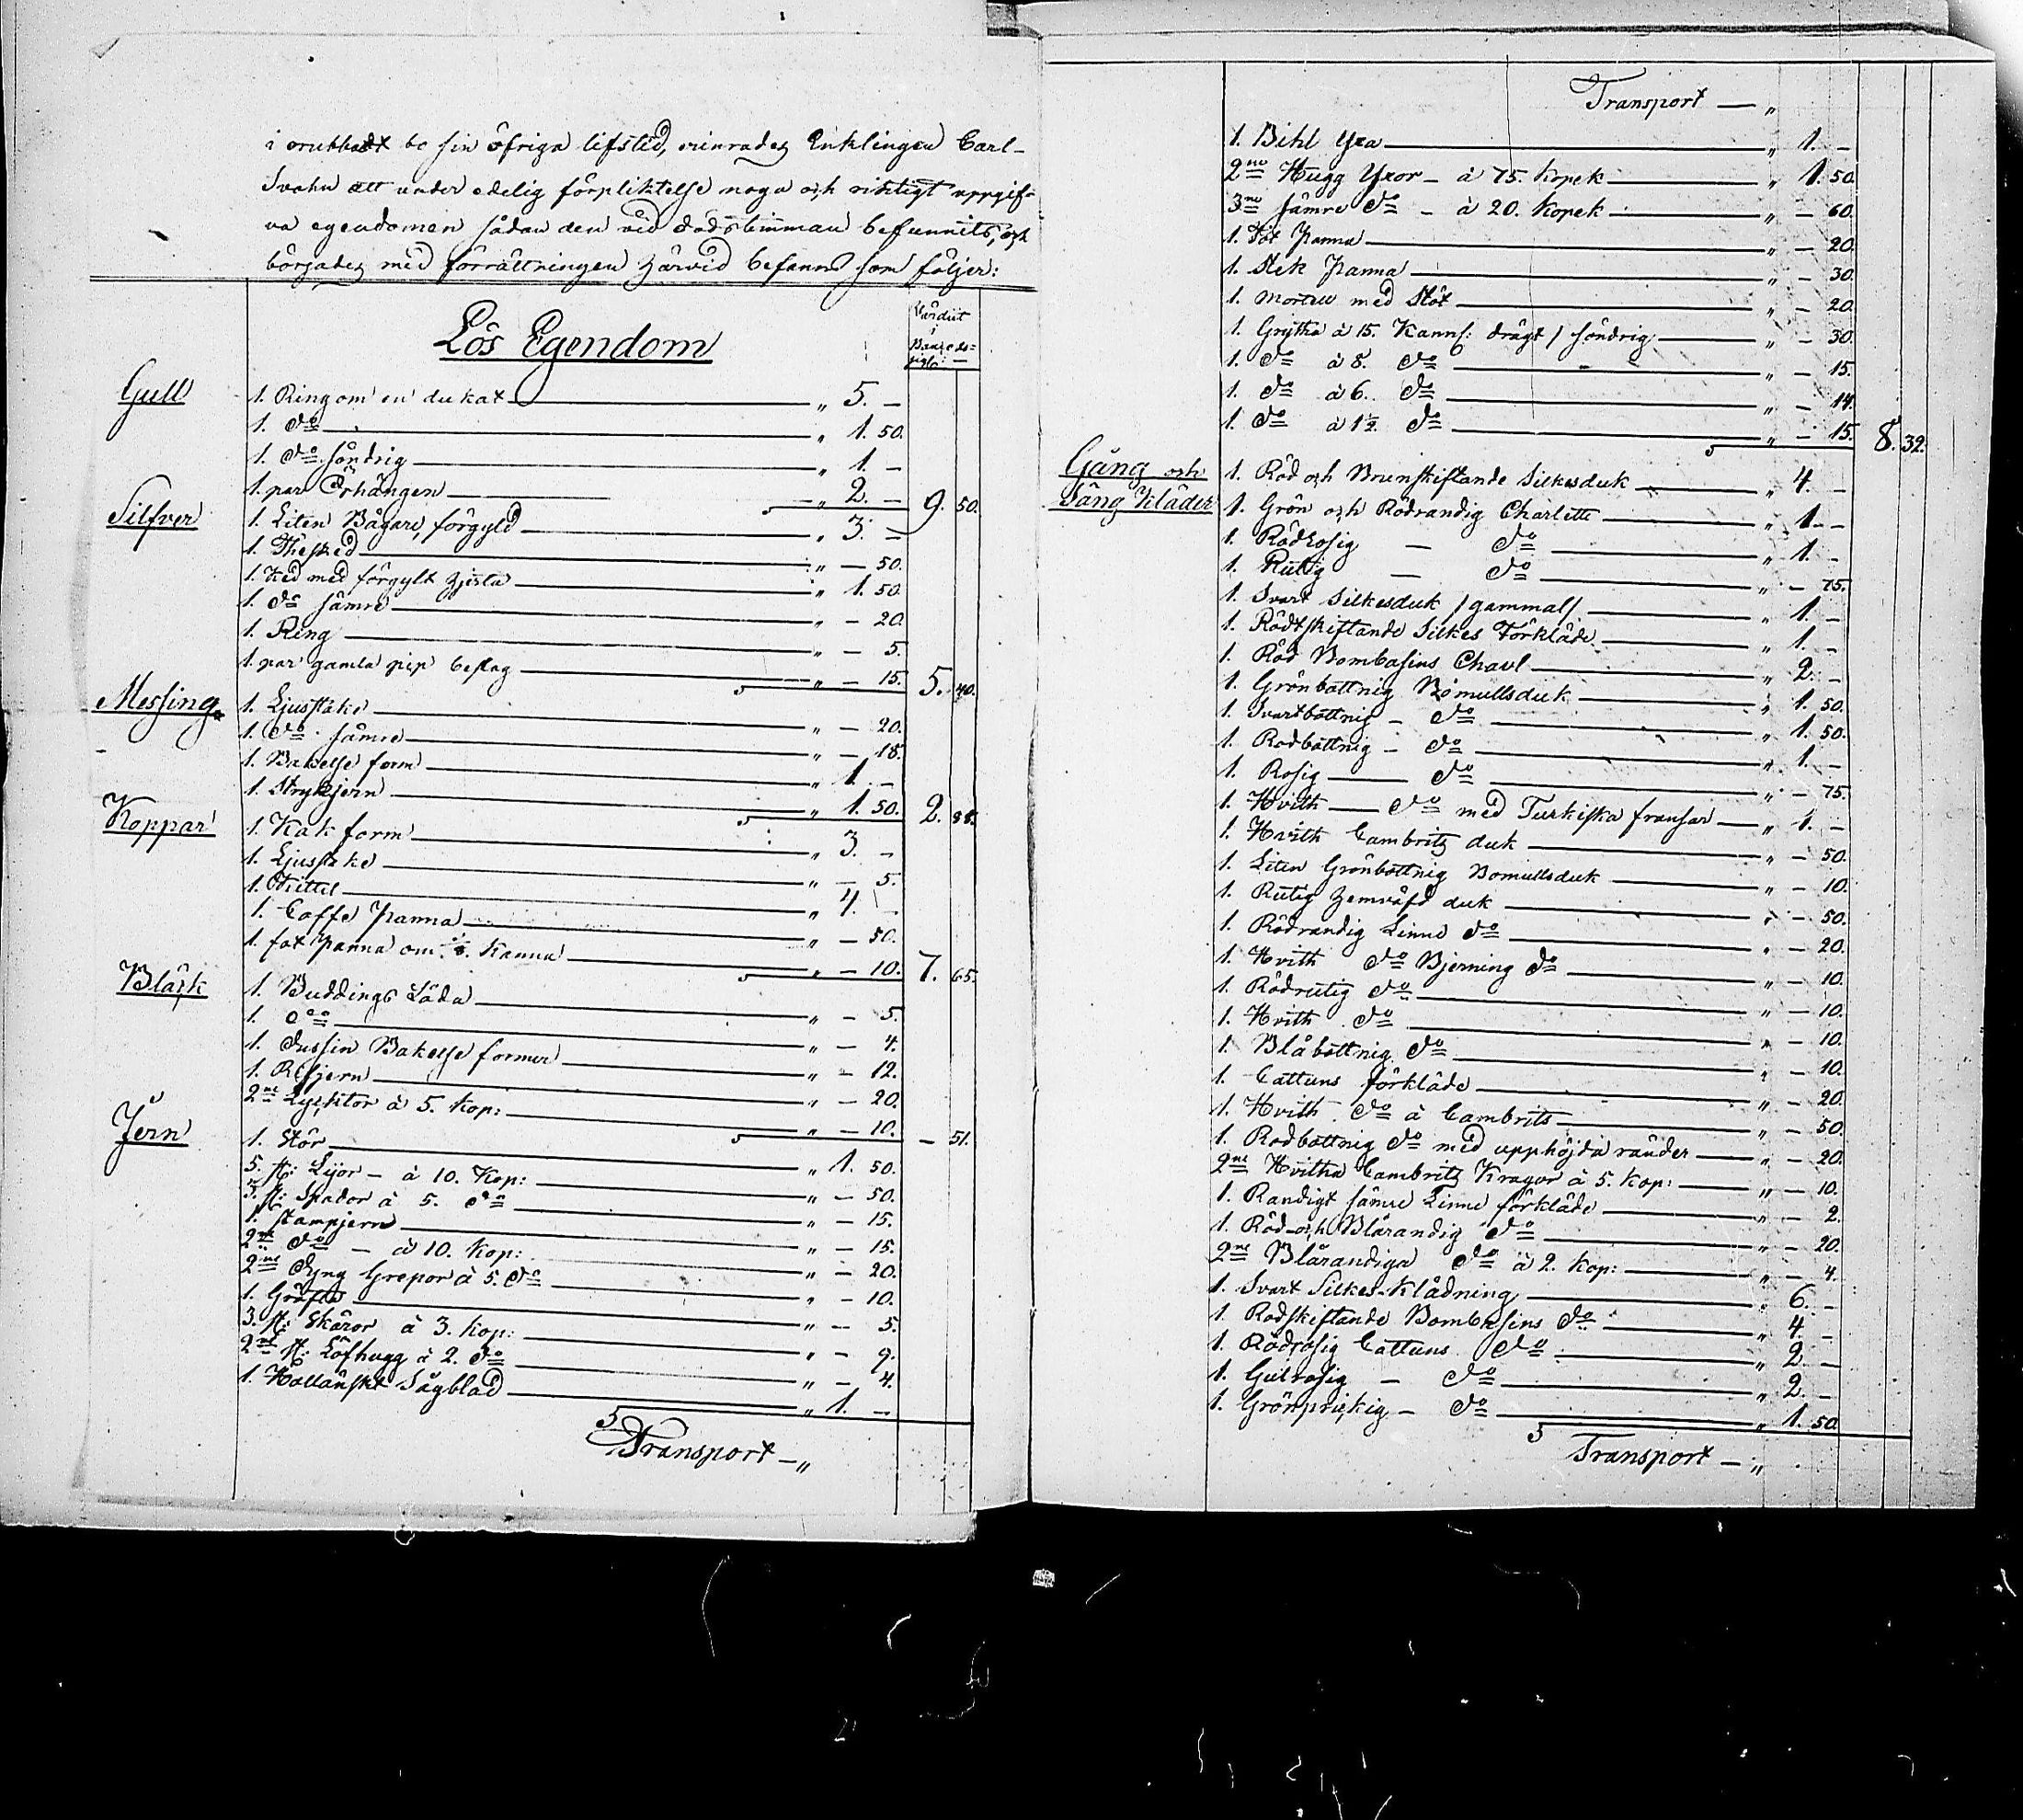 i orubbadt bo sin öfriga lifstid, erinrades Enklingen Carl
Svahn att under edelig förpliktelse noga och riktigt uppgif-
va egendomen sådan den vid dödstimman befunnits, och
börjades med förrättningen härvid befanns som följer:
Lös Egendom
Värdiet i
Gull
1. Ring om en dukat — " 5. —
1. do — " 1. 50.
1. do söndrig — " 1 —
1. par Örhängen — " 2. — 9. 50.
Silfver
1. Liten Bägare, förgyld — " 3. —
1. Thesked — " — 50.
1. Ked med förgylt hjerta — " 1. 50.
1. do sämre — " — 20.
1. Ring — " — 5.
1. par gamla pip beslag — " — 15. 5. 40.
Messing
1. Ljusstake — " — 20.
1. do sämre — " — 18.
1. Bakelse form — " 1. —
1. Strykjern — " 1. 50. 2. 88.
Koppar
1. Kak form — " 3. —
1. Ljusstake — " — 5.
1. Kittel — " 4. —
1. Caffe panna — " — 50.
1. fot panna om Kanna — " — 10. 7. 65.
Bläck
1. Buddings Låda — " — 5.
1. do — " — 4.
1. dussin Bakelse former — " — 12.
1. Rifjern — " — 20.
2ne Lycktor à 5. Kop: — " — 10. — 51.
Jern
1. Stör — " 1. 50.
5. st: Lijor — à 10. Kop: — " — 50.
3. st: Spador à 5. do — " — 15.
1. Stampjern — " — 15.
2ne do — à 10. Kop: — " — 20.
2ne Dyng Grepor à 5. do — " — 10.
1. Gräfta — " — 5.
3. st: Skäror à 3. Kop: — " — 9.
2ne st: Löfhugg à 2. do — " — 4.
1. Hollänskt Sågblad — " 1. —
Transport — "
Transport — "
1. Bihl Yxa — " 1. —
2ne Hugg Yxor — à 75. Kopek — " 1. 50.
3ne sämre do — à 20. Kopek — " — 60.
1. Fot panna — " — 20.
1. Stek panna — " — 30.
1. mortell med Stöt — " — 20.
1. Grytha à 15. Kann: drägt / söndrig — " — 30.
1. do à 8. do — " — 15.
1. do à 6. do — " — 14.
1. do à 1½ do — " — 15. 8. 39.
Gång och
Säng Kläder
1. Röd och Brunskiftande Silkesduk — " 4. —
1. Grön och Rödrandig Charlette — " 1. —
1. Rödrosig — do — " 1. —
1. Rutig — do — " — 75.
1. Svart Silkesduk / gammal / — " 1. —
1. Rödtskiftande Silkes Förkläde — " 1. —
1. Röd Bombasins Chavl — " 2. —
1. Grönbottnig Bomullsduk — " 1. 50.
1. Svartbottnig — do — " 1. 50.
1. Rödbottnig — do — " 1. —
1. Rosig — do — " — 75.
1. Hvith — do med Turkiska fransar — " 1. —
1. Hvith Cambritz duk — " — 50.
1. Liten Grönbottnig Bomullsduk — " — 10.
1. Rutig hemväfd duk — " — 50.
1. Rödrandig Linne do — " — 20.
1. Hvith do Bjerning do — " — 10.
1. Rödrutig do — " — 10.
1. Hvith do — " — 10.
1. Blåbottnig do — " — 10.
1. Cattuns förkläde — " — 20.
1. Hvith do à Cambrits — " — 50.
1. Rödbottnig do med upphöjda ränder — " — 20.
2ne Hvitha Cambritz Kragor à 5. Kop: — " — 10.
1. Randigt sämre Linne förkläde — " — 2.
1. Röd och Blårandig do — " — 20.
2ne Blårandiga do à 2. Kop: — " — 4.
1. Svart Silkes-Klädning — " 6. —
1. Rödskiftande Bombasins do — " 4. —
1. Rödrosig Cattuns do — " 2. —
1. Gulrosig — do — " 2. —
1. Grönprickig — do — " 1. 50.
Transport — "